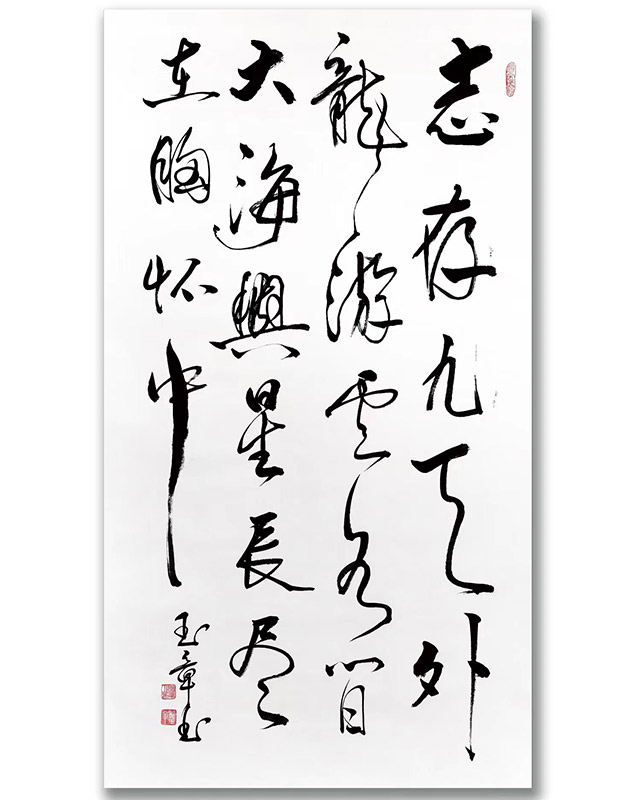 志存九天外
龍游雲间
大海與星辰尽
在胸怀中
玉章书